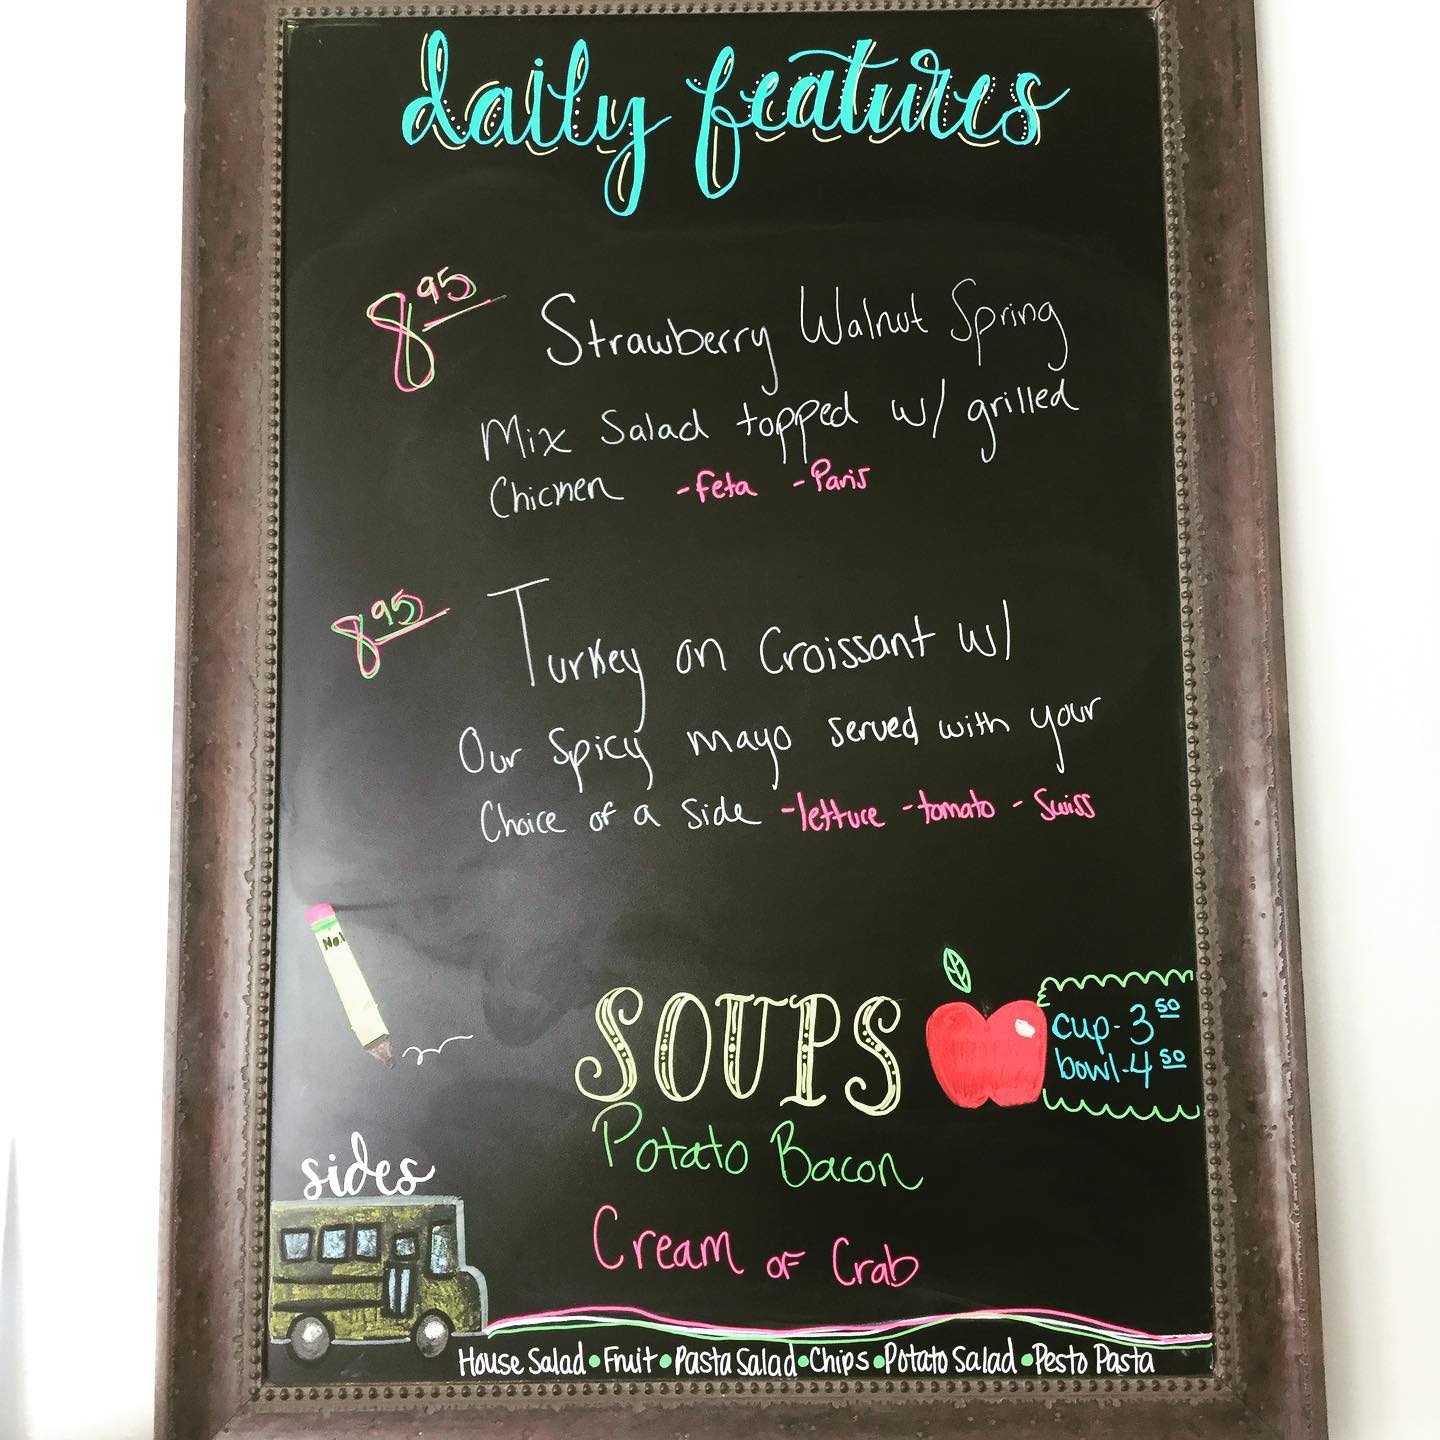 daily features
8 95 Strawberry Walnut Spring
Mix Salad topped w/ grilled
Chicken -feta -Paris
8 95 Turkey on Croissant w/
Our Spicy mayo served with your
Choice of a side -lettuce -tomato - Swiss
No.
SOUPS
cup-3 50
bowl-4 50
Potato Bacon
Cream of Crab
sides
House Salad • Fruit • Pasta Salad • Chips • Potato Salad • Pesto Pasta